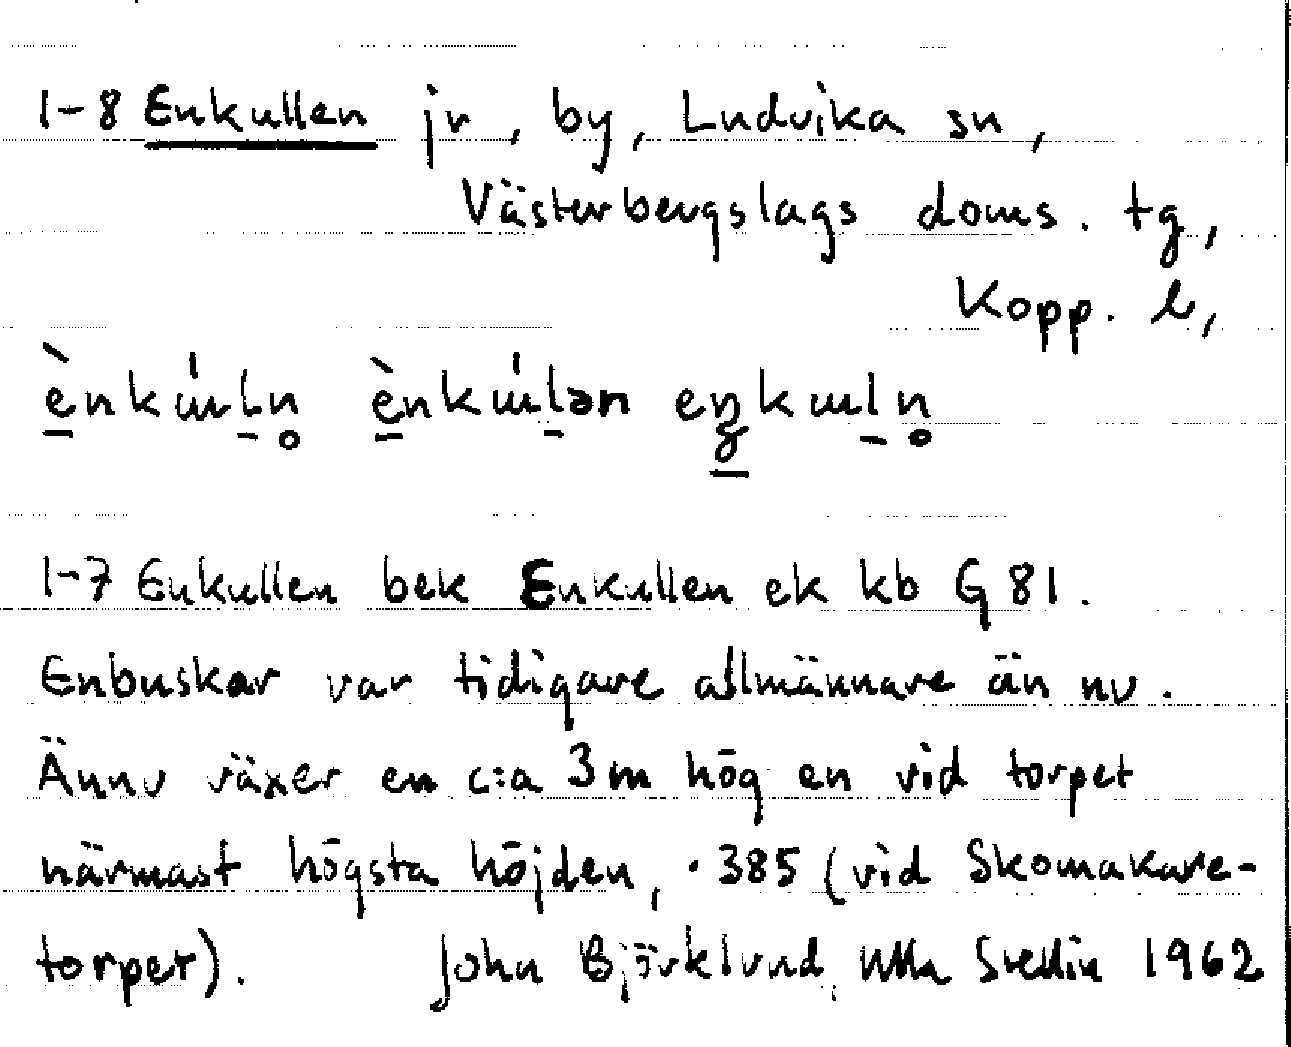 1-8 Enkullen jr, by, Ludvika sn,
Västerbergslags doms. tg,
Kopp. l,
1-7 Enkullen bek Enkullen ek kb G 81.
Enbuskar var tidigare allmännare än nu.
Ännu växer en c:a 3 m hög en vid torpet
närmast högsta höjden, .385 (vid Skomakare-
torpet). John Björklund, Ulla Stedin 1962